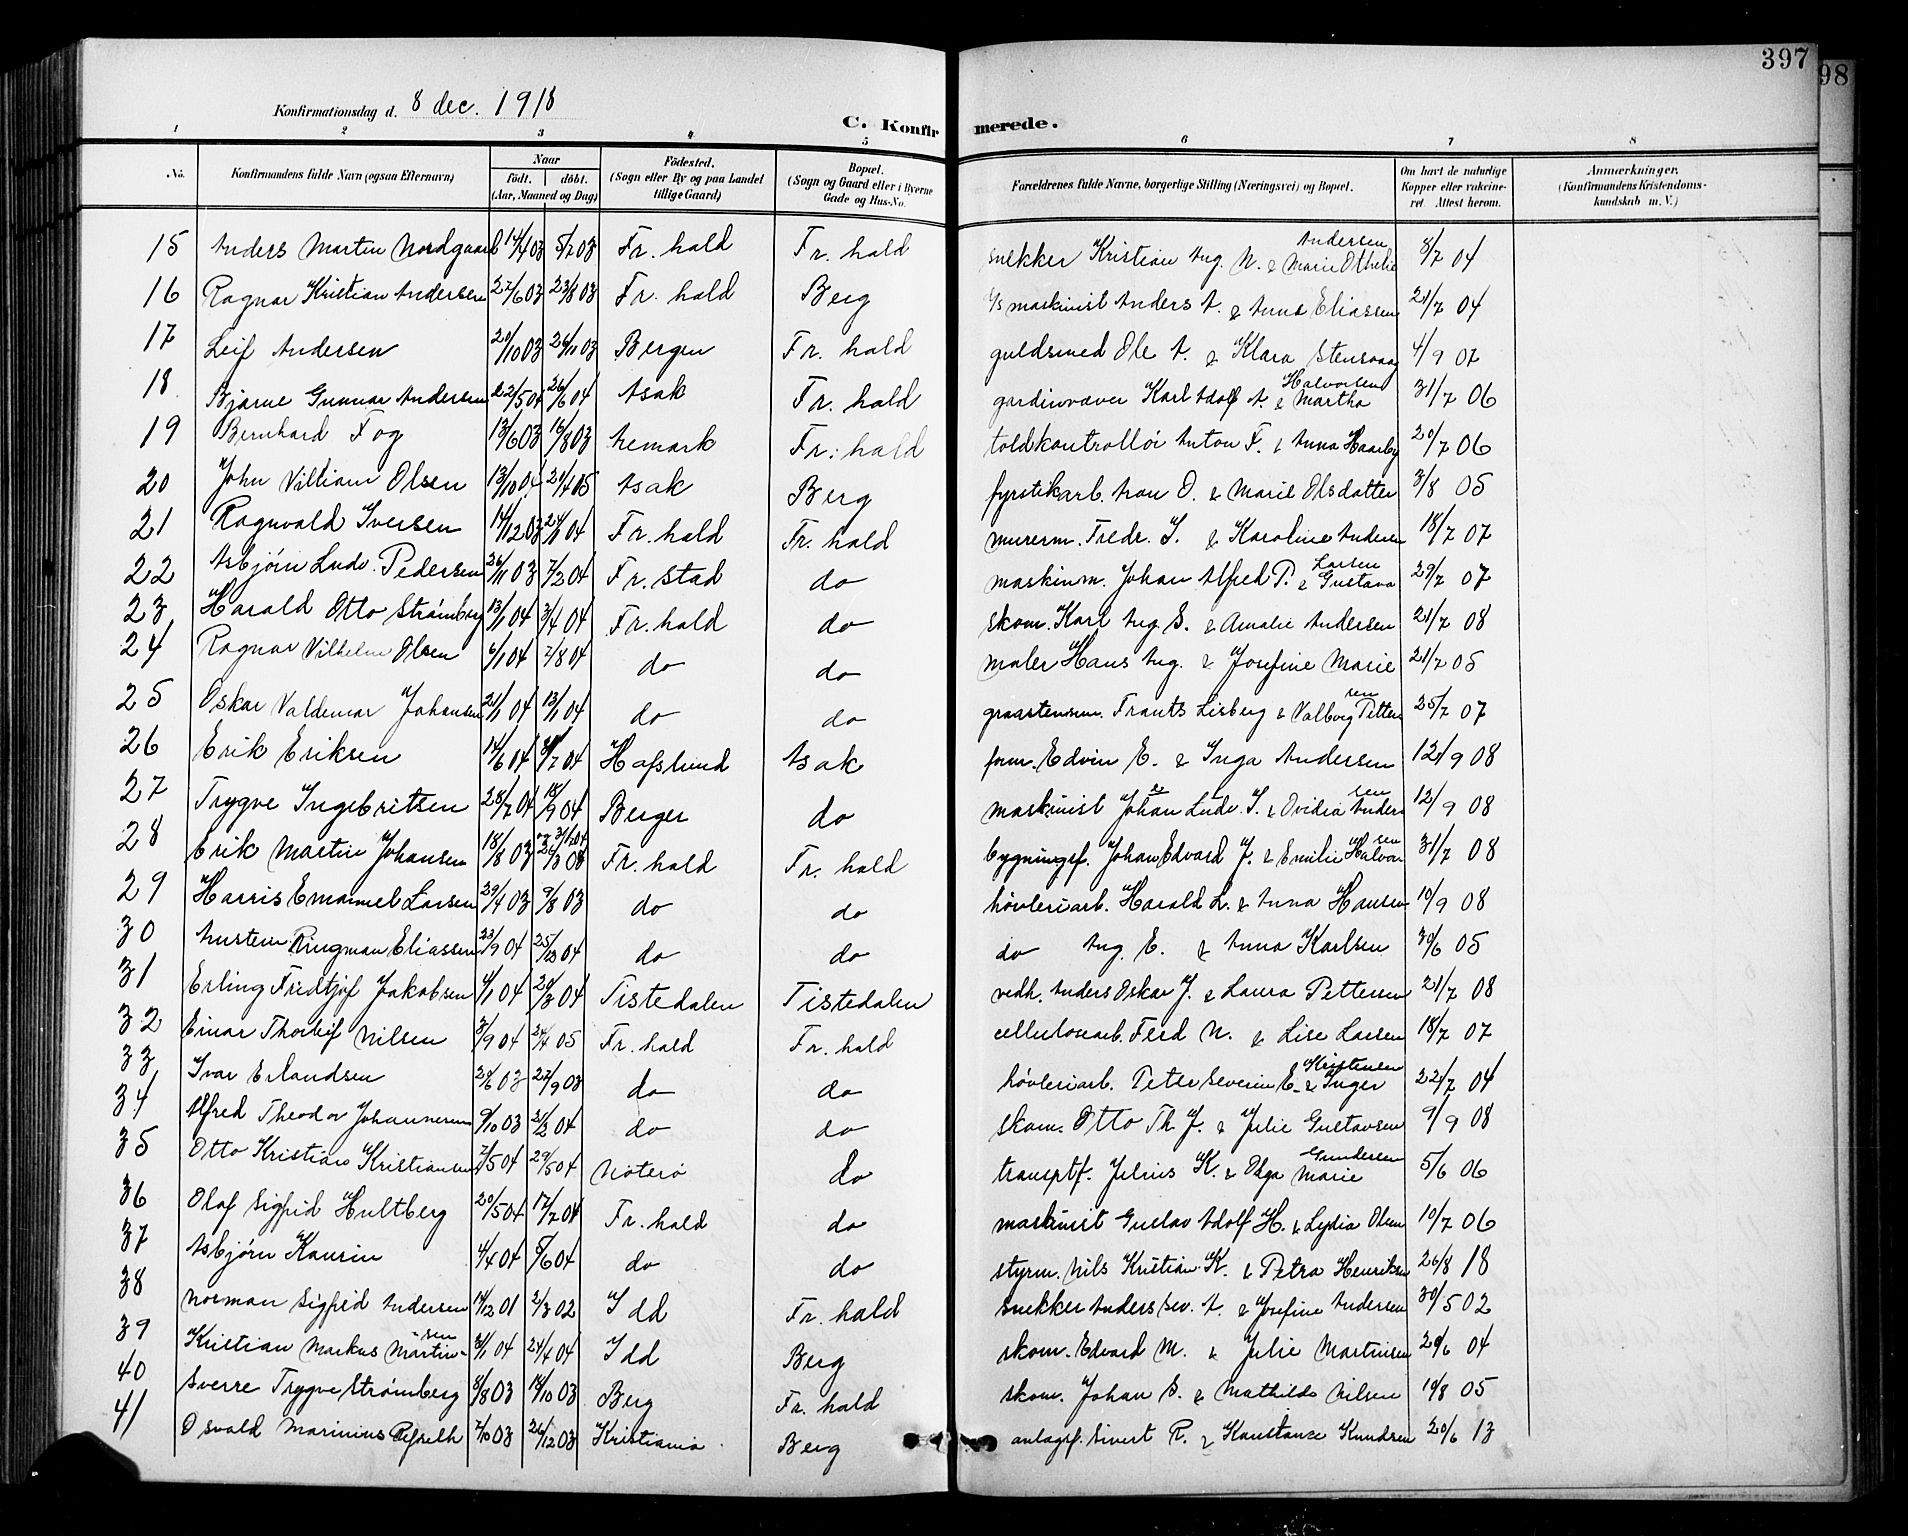 397
98
Konfirmationsdag d. 8 dec. 1918
C. Konfirmerede.
1 2 3 4 5 6 7 8
No. Konfirmandens fulde Navn (ogsaa Efternavn) Naar födt. döbt. (Aar, Maaned og Dag) Födested. (Sogn eller By og paa Landet tillige Gaard) Bopæl. (Sogn og Gaard eller i Byerne Gade og Hus-No. Forældrenes fulde Navne, borgerlige Stilling (Næringsvei) og Bopæl. Om havt de naturlige Kopper eller vakcineret. Attest herom. Anmærkninger. (Konfirmandens Kristendomskundskab m. V.)
15 Anders Martin Nordgaard 14/4 03 5/7 03 Fr. hald Fr. hald snekker Kristian Aug. N. & Marie Othelie Andersen 8/7 04
16 Ragnar Kristian Andersen 27/6 03 23/8 03 Fr. hald Berg maskinist Anders A. & Anna Eliassen 21/7 04
17 Leif Andersen 20/10 03 26/11 03 Bergen Fr. hald guldsmed Ole A. & Klara 4/9 07
18 Bjarne Gunnar Andersen 22/5 04 26/6 04 Asak Fr. hald gardinvæver Karl Adolf A. & Martha Halvorsen 31/7 06
19 Bernhard Fog 13/6 03 16/8 03 Aremark Fr. hald toldkontrollör Anton F. & Anna Haarby 20/7 06
20 John Villiam Olsen 13/10 04 21/4 05 Asak Berg fyrstikarb. Aron O. & Marie Olsdatter 3/8 05
21 Ragnvald Iversen 14/12 03 24/1 04 Fr. hald Fr. hald murerm. Fredr. I. & Karoline Andersen 18/7 07
22 Asbjørn Ludv. Pedersen 26/11 03 7/2 04 Fr. stad do maskinm. Johan Alfred P. & Gustava Larsen 29/7 07
23 Harald Otto Strømberg 13/1 04 3/4 04 Fr. hald do skom. Karl Aug. S. & Amalie Andersen 21/7 08
24 Ragnar Vilhelm Olsen 6/1 04 7/8 04 do do maler Hans Aug. & Josefine Marie 21/7 05
25 Oskar Valdemar Johansen 21/1 04 13/1 04 do do graastensm. Frants Lisberg & Valborg Pettersen 25/7 07
26 Erik Eriksen 14/6 04 /7 04 Hafslund Asak form. Edvin E. & Inga Andersen 12/9 08
27 Trygve Ingebritsen 28/7 04 18/9 04 Berger do maskinist Johan Ludv. I. & Ovidia Andersen 12/9 08
28 Erik Martin Johansen 18/8 03 26/3 08 Fr. hald Fr. hald bygningsf. Johan Edvard J. & Emilie Halvorsen 31/7 08
29 Harris Emanuel Larsen 29/4 03 9/8 03 do do høvleriarb. Harald L. & Anna Hansen 10/9 08
30 Austein Ringman Eliassen 23/9 04 25/12 04 do do do Aug. E. & Anna Karlsen 30/6 05
31 Erling Fridtjof Jakobsen 4/1 04 20/3 04 Tistedalen Tistedalen vedh. Anders Oskar J. & Laura Pettersen 21/7 08
32 Einar Thorleif Nilsen 3/9 04 24/4 05 Fr. hald Fr. hald cellulosearb. Ferd N. & Lise Larsen 18/7 07
33 Ivar Erlandsen 28/6 03 27/9 03 do do høvleriarb. Peter Severin E. & Inger Kristensen 22/7 04
34 Alfred Theodor Johannesen 9/10 03 21/2 04 do do skom. Otto Th. J. & Julie Gustavsen 9/9 08
35 Otto Kristian Kristiansen 7/5 04 29/5 04 Nøterø do transptf. Julius K. & Olga Marie Gundersen 5/6 06
36 Olaf Sigfrid Hultberg 20/5 04 17/7 04 Fr. hald do maskinist Gustav Adolf H. & Lydia Olsen 10/7 06
37 Asbjørn Kaurin 4/4 04 5/6 04 do do styrm. Nils Kristian K. & Petra Henriksen 26/8 18
38 Norman Sigfrid Andersen 14/12 01 2/3 02 Idd Fr. hald snekker Anders Sev. A. & Josefine Andersen 30/5 02
39 Kristian Markus Martinsen 31/1 04 24/4 04 Idd Berg skom. Edvard M. & Julie Martinsen 20/6 04
40 Sverre Trygve Strømberg 8/8 03 18/10 03 Berg Fr. hald skom. Johan S. & Mathilde Nilsen 10/8 05
41 Osvald Marinius 7/10 03 26/12 03 Kristiania Berg anlagsf. Sivert R. & Konstanse Knudsen 20/6 13